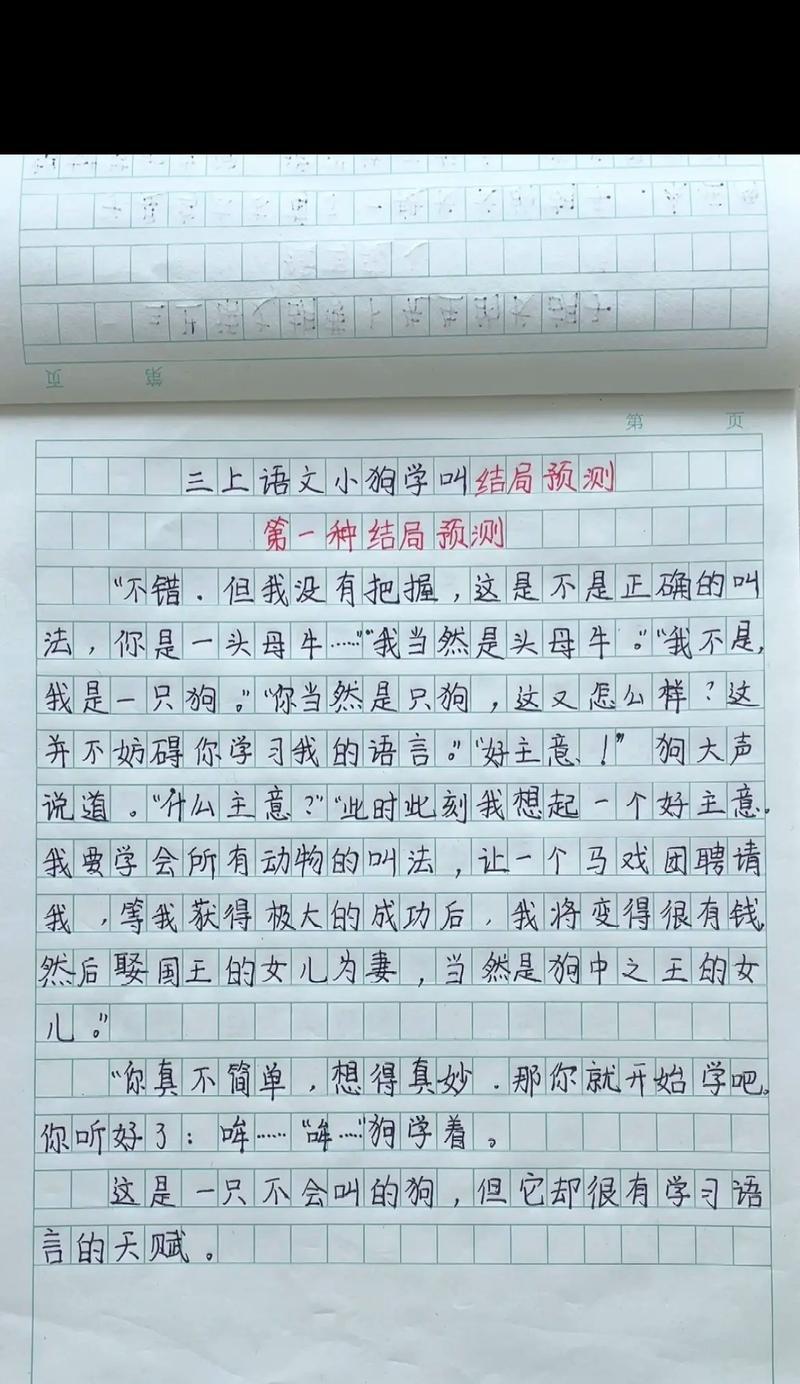 第 页
第 页
三上语文小狗学叫结局预测
第一种结局预测
“不错.但我没有把握,这是不是正确的叫
法,你是一头母牛……”“我当然是头母牛。”“我不是,
我是一只狗。”“你当然是只狗,这又怎么样?这
并不妨碍你学习我的语言。”“好主意!” 狗大声
说道。“什么主意?”“此时此刻我想起一个好主意.
我要学会所有动物的叫法,让一个马戏团聘请
我,等我获得极大的成功后,我将变得很有钱,
然后娶国王的女儿为妻,当然是狗中之王的女
儿。”
“你真不简单,想得真妙.那你就开始学吧。
你听好了:哞……“哞……”狗学着。
这是一只不会叫的狗,但它却很有学习语
言的天赋。